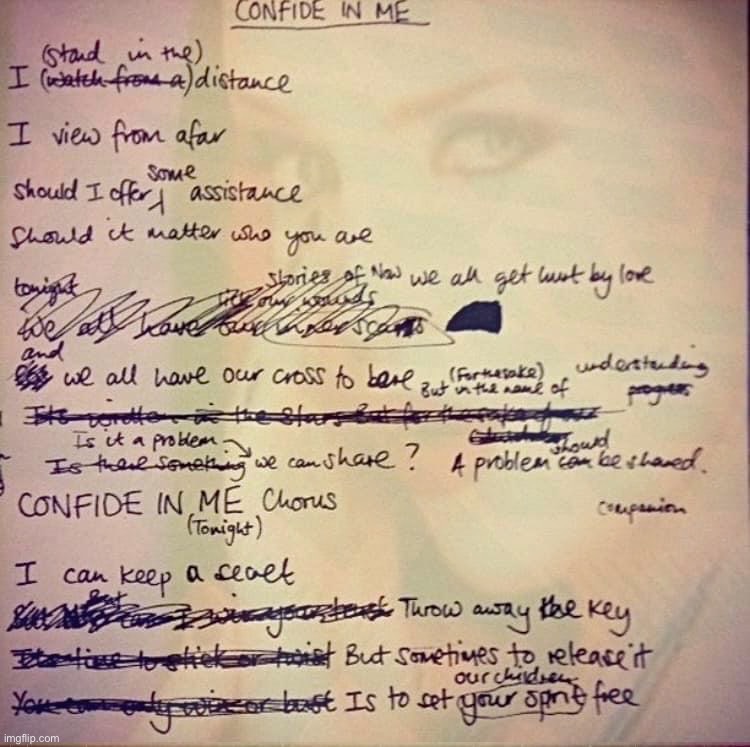 CONFIDE IN ME
(stand in the)
I (watch from a) distance
I view from afar
some
should I offer assistance
Should it matter who you are
tonight
stories of Now we all get hurt by love
lick our wounds
We all have our inner scars
and
we all have our cross to bare
(For the sake)
But in the name of
understanding
progress
Its written in the Stars But for the sake of
Is it a problem
Is there something we can share?
should
A problem can be shared.
CONFIDE IN ME Chorus
(Tonight)
companion
I can keep a secret
Throw away the key
Its time to stick or twist But sometimes to release it
our children
You can only win or bust Is to set your sprit free
imgflip.com